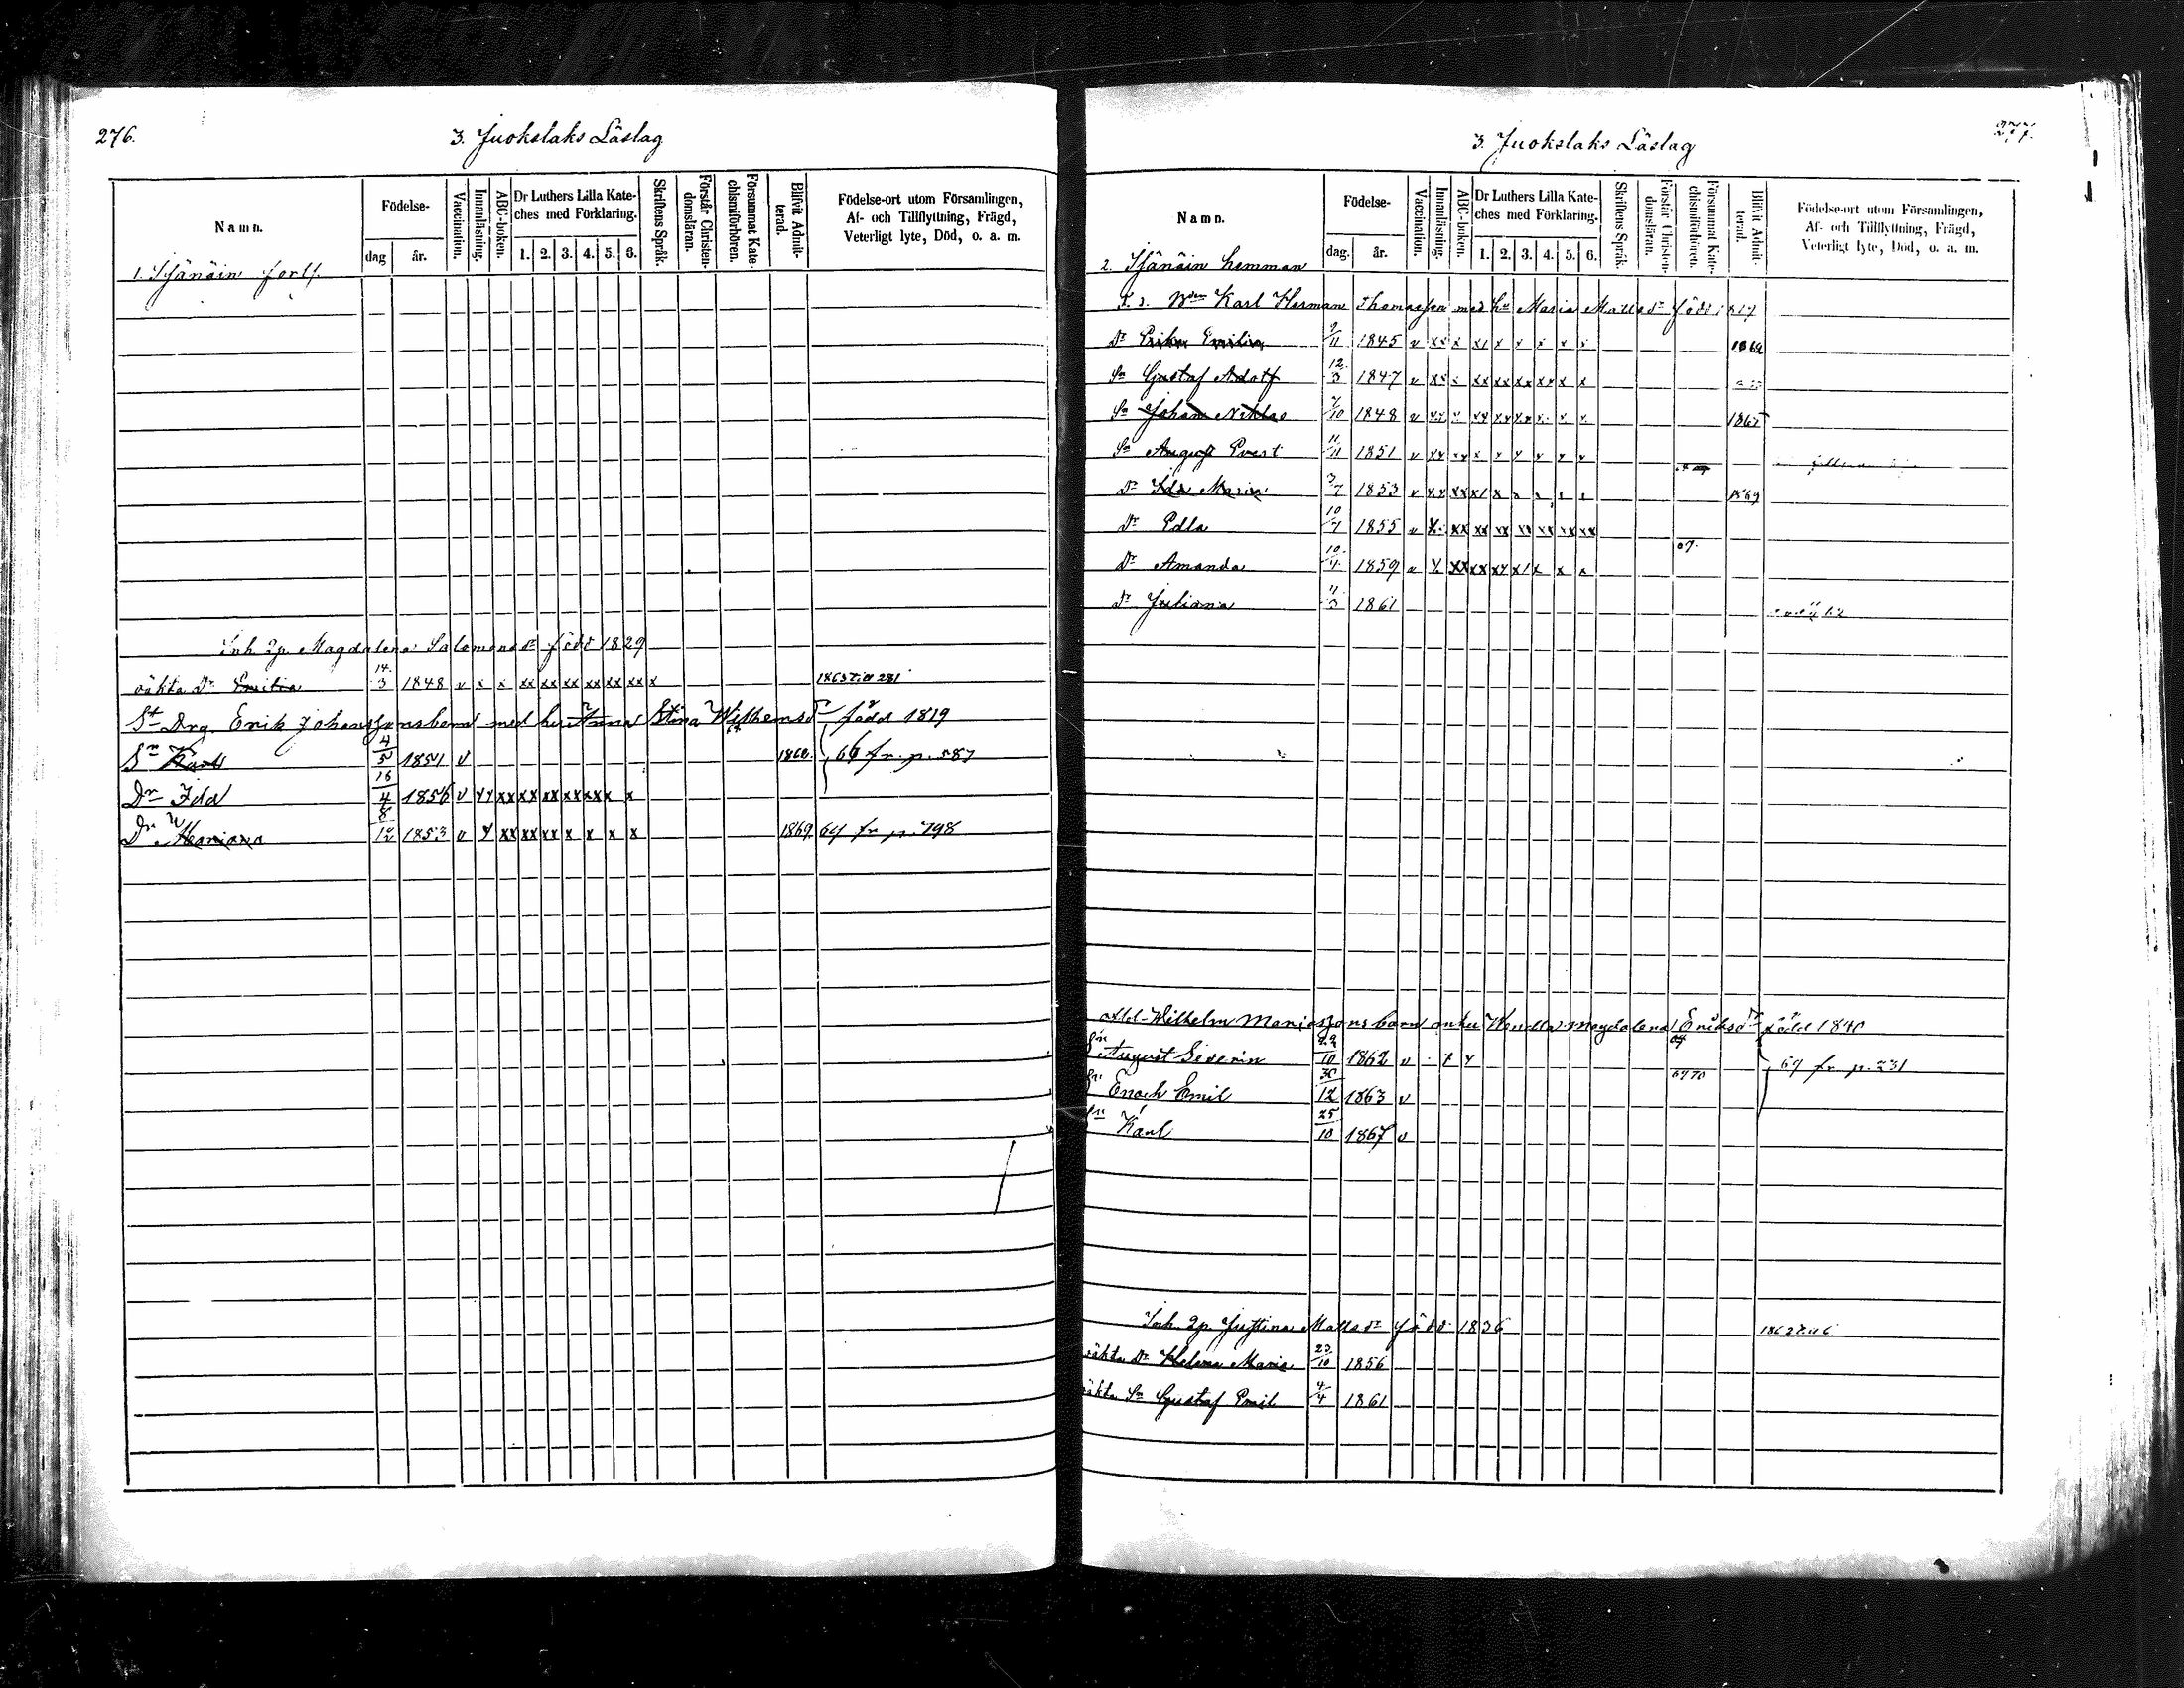 276.
3. Juokslaks Läslag
Namn.
Födelse-
dag
år.
Vaccination.
Innanläsning.
ABC-boken.
Dr Luthers Lilla Kate-
ches med Förklaring.
1. 2. 3. 4. 5. 6.
Skriftens Språk.
Förstår Christen-
domsläran.
Försummat Kate-
chismiförhören.
Blifvit Admit-
terad.
Födelse-ort utom Församlingen,
Af- och Tillflyttning, Frägd,
Veterligt lyte, Död, o. a. m.
1. forts.
Inh. 2p. Magdalena Salomonsdr född 1829
oäkta Dr Emilia 14/3 1848 v x x xx xx xx xx xx xx x 1863 till 281
St Drg. Erik Johanszonsbarn med hu Anna Stina Wilhemsdr född 1819
Sn Karl 4/5 1851 v 1868. 66 fr. p. 587
Dr Ida 16/4 1856 v xx xx xx xx xx xx x x
Dr Mariana 8/12 1853 v x xx xx xx x x x x 1869. 64 fr p. 798
3. Juokslaks Läslag
277.
Namn.
Födelse-
dag.
år.
Vaccination.
Innanläsning.
ABC-boken.
Dr Luthers Lilla Kate-
ches med Förklaring.
1. 2. 3. 4. 5. 6.
Skriftens Språk.
Förstår Christen-
domsläran.
Försummat Kate-
chismiförhören.
Blifvit Admit-
terad.
Födelse-ort utom Församlingen,
Af- och Tillflyttning, Frägd,
Veterligt lyte, Död, o. a. m.
2. hemman
Karl Herman Thomasson med hu Maria Matsdr född 1817
Dr Erika Emilia 1845 v xx x x1 x x x x x 1862
Sn Gustaf Adolf 12/3 1847 v xx x xx xx xx xx x x
Sn Johan Niklas 7/10 1848 v xx x xx xx xx x x x 1865
Sn August Evert 11/11 1851 v xx xx x x x x x x
Dr Ida Maria 3/7 1853 v xx xx x1 x x x x x 1869
Dr Edla 10/7 1855 v x xx xx xx xx xx xx xx
Dr Amanda 1859 v x xx xx xx x1 x x x
Dr Juliana 11/3 1861
Wilhelm Mariaszons barn Magdalena Eriksdr född 1840
Sn August Severin 22/10 1862 v x x 69 fr. p. 231
Sn Enoch Emil 30/12 1863 v 6970
Sn Karl 25/10 1867 v
Inh. 2p. Justina Matsdr född 1836
oäkta Dr Helena Maria 23/10 1856
oäkta Sn Gustaf Emil 4/4 1861